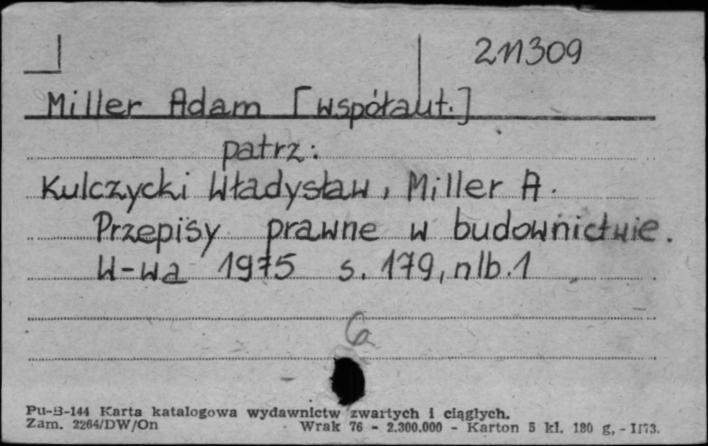 211309
Miller Adam [współaut.]
patrz:
Kulczycki Władysław, Miller A.
Przepisy prawne w budownictwie.
W-wa 1975 s. 179, nlb. 1
6
Pu-B-144 Karta katalogowa wydawnictw zwartych i ciągłych.
Zam. 2264/DW/On Wrak 76 - 2.300.000 - Karton 5 kl. 180 g. - I/73.